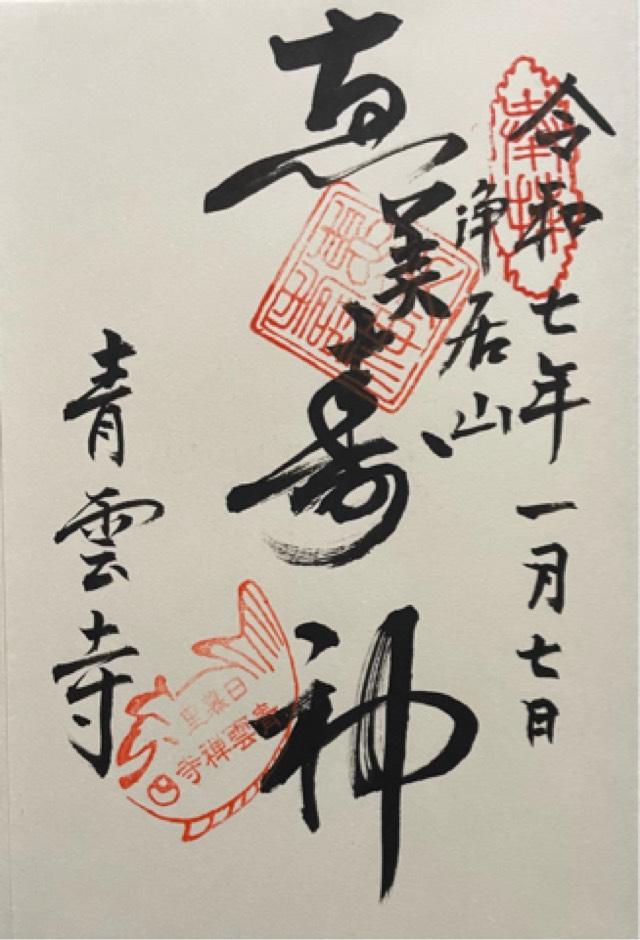 奉拝
令和七年一月七日
浄居山
恵美寿神
青雲寺
青雲禅寺